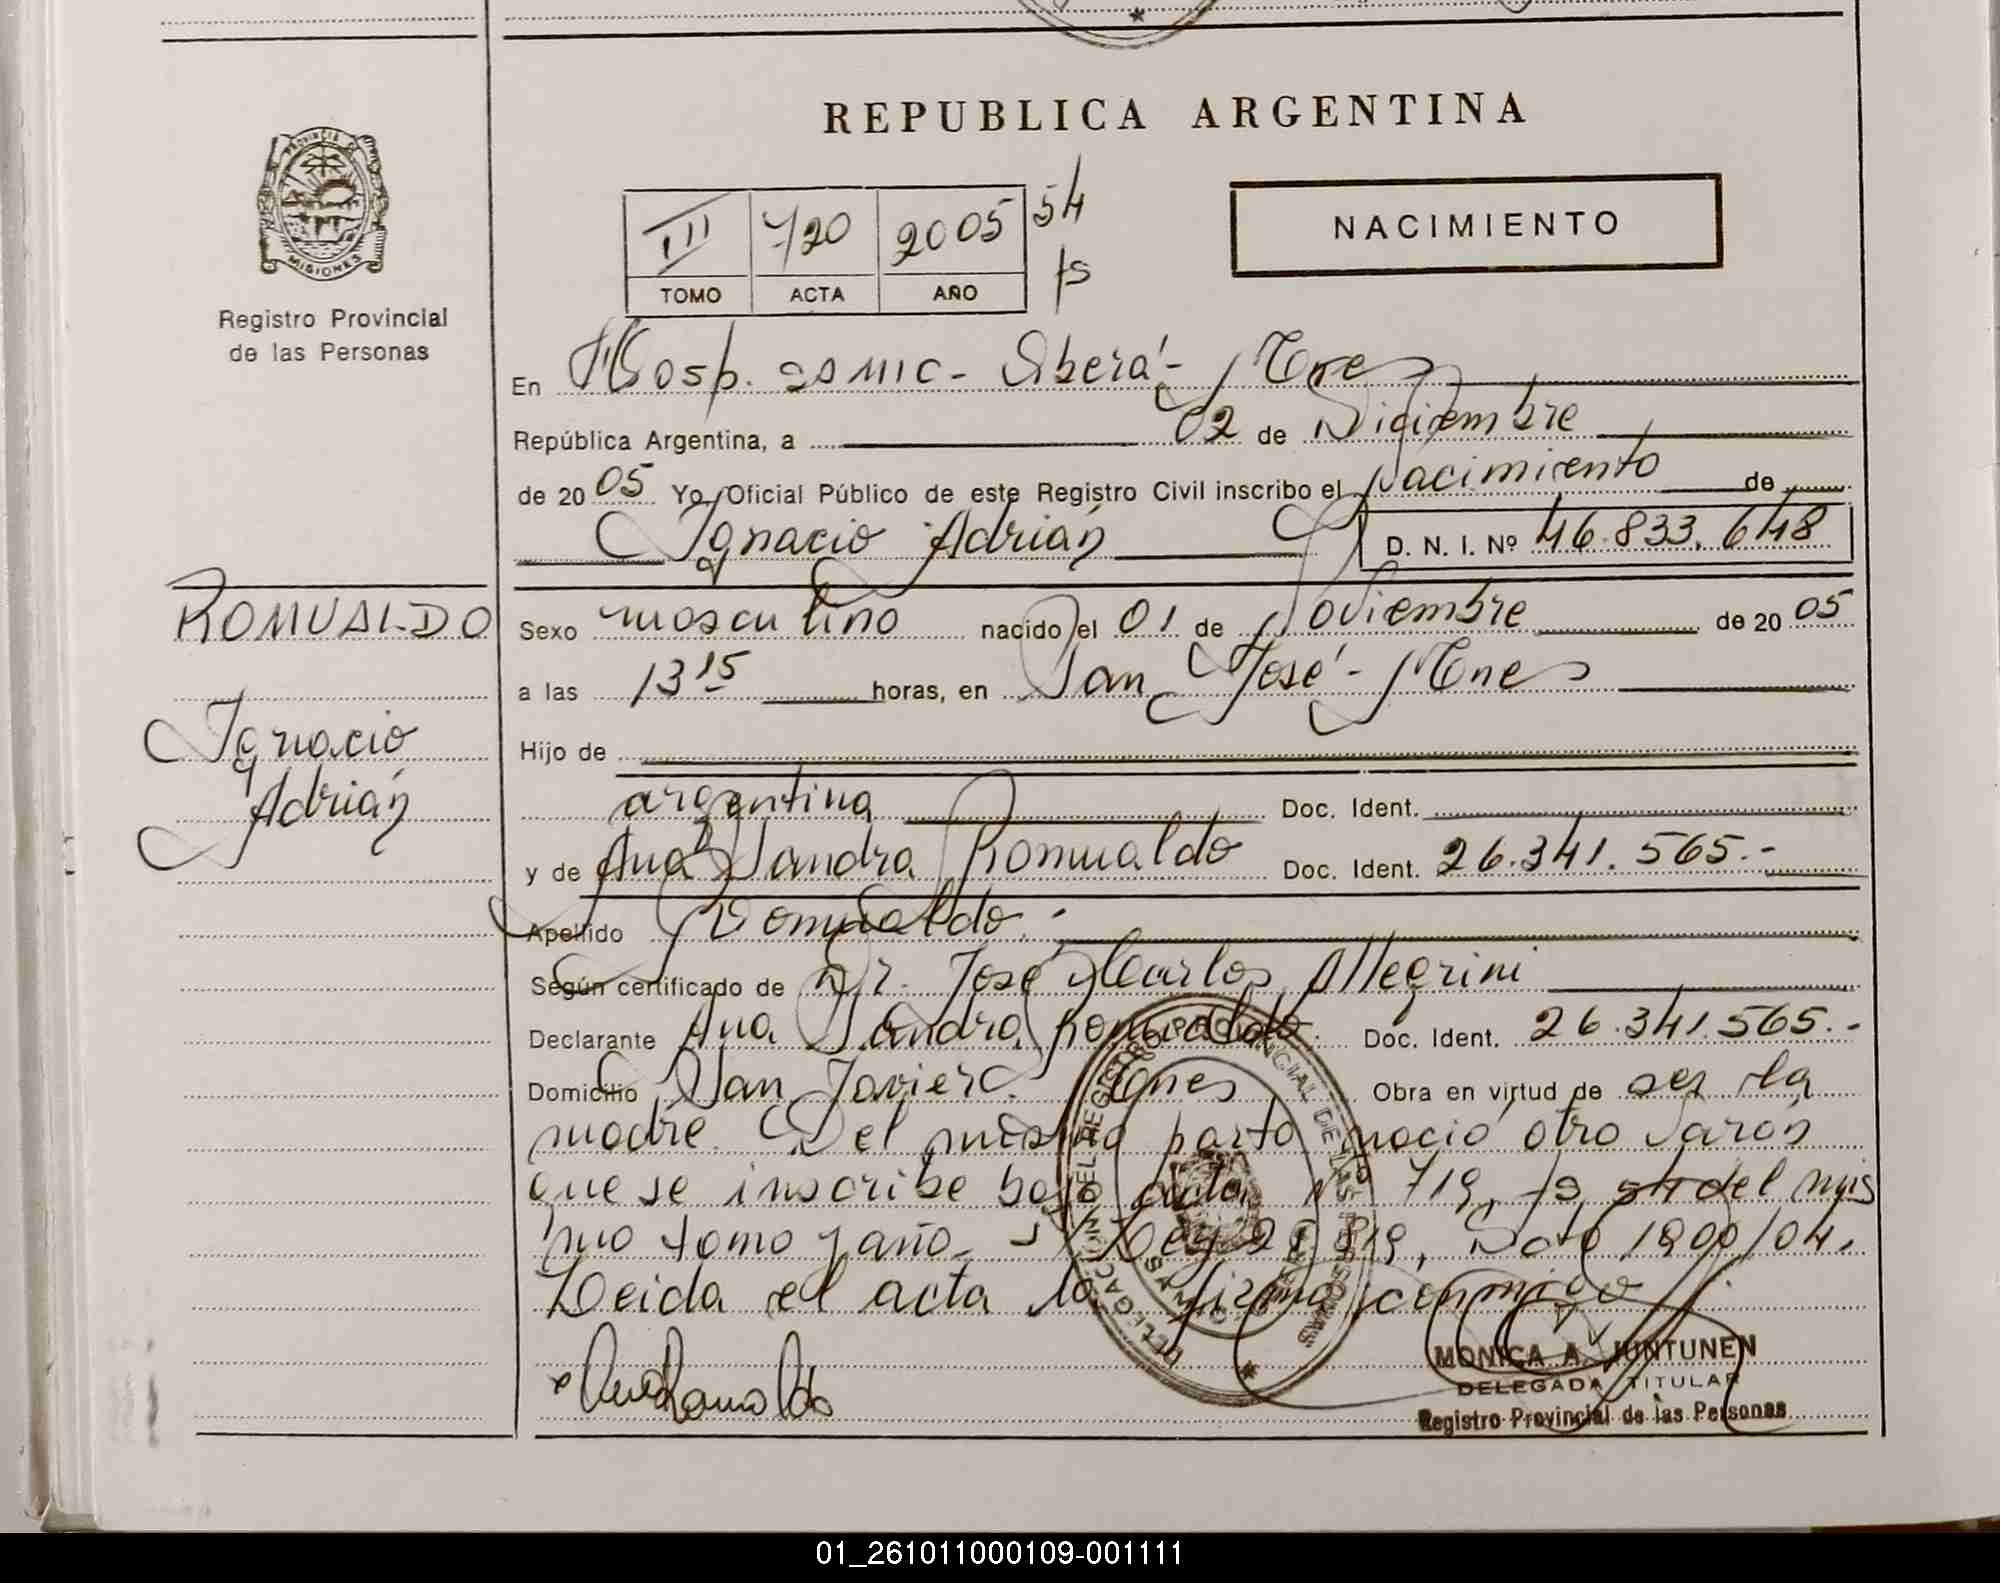 REPUBLICA ARGENTINA
PROVINCIA DE MISIONES
Registro Provincial
de las Personas
III 720 2005 54
TOMO ACTA AÑO fs
NACIMIENTO
En Hosp. SAMIC - Oberá - Mnes
República Argentina, a 02 de Diciembre
de 2005 Yo, Oficial Público de este Registro Civil inscribo el Nacimiento de
Ignacio Adrián D. N. I. Nº 46.833.648
ROMUALDO
Ignacio
Adrián
Sexo masculino nacido el 01 de Noviembre de 2005
a las 13 15 horas, en San José - Mnes
Hijo de
argentina Doc. Ident.
y de Ana Sandra Romualdo Doc. Ident. 26.341.565.-
Apellido Romualdo.-
Según certificado de Dr. José Carlos Allegrini
Declarante Ana Sandra Romualdo. Doc. Ident. 26.341.565.-
Domicilio San Javier. Mnes Obra en virtud de ser la
madre. Del mismo parto nació otro varón
que se inscribe bajo acta nº 719, fs 54 del mis
mo tomo y año. Ley 25.819, Dcto 1900/04.
Leida el acta la firma conmigo
Ana Romualdo
MONICA A. JUNTUNEN
DELEGADA TITULAR
Registro Provincial de las Personas
DELEGACION DEL REGISTRO PROVINCIAL DE LAS PERSONAS
01_261011000109-001111